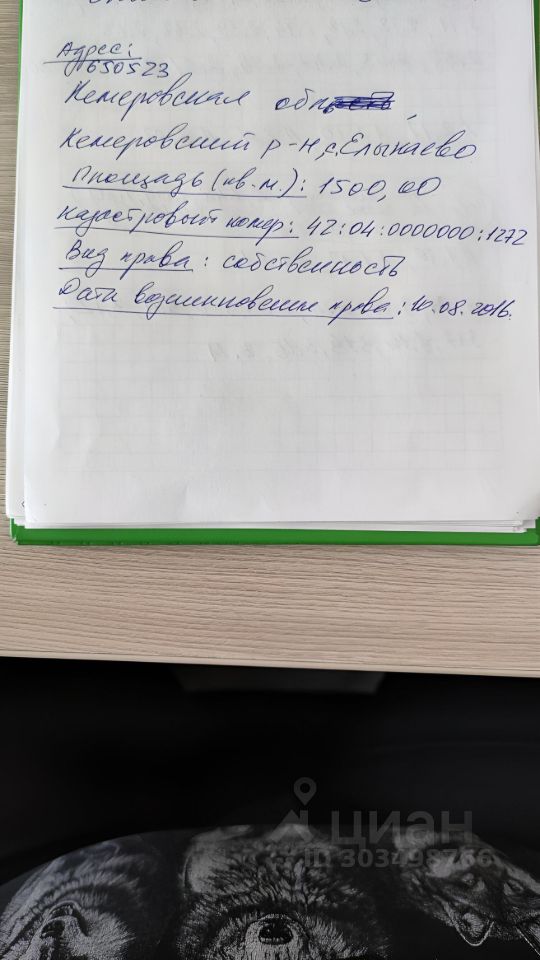 Адрес:
650523
Кемеровская обл,
Кемеровский р-н, с. Елыкаево
Площадь (кв.м.): 1500,00
Кадастровый номер: 42:04:0000000:1272
Вид права: собственность
Дата возникновения права: 10.08.2016.
циан
ID 303498766